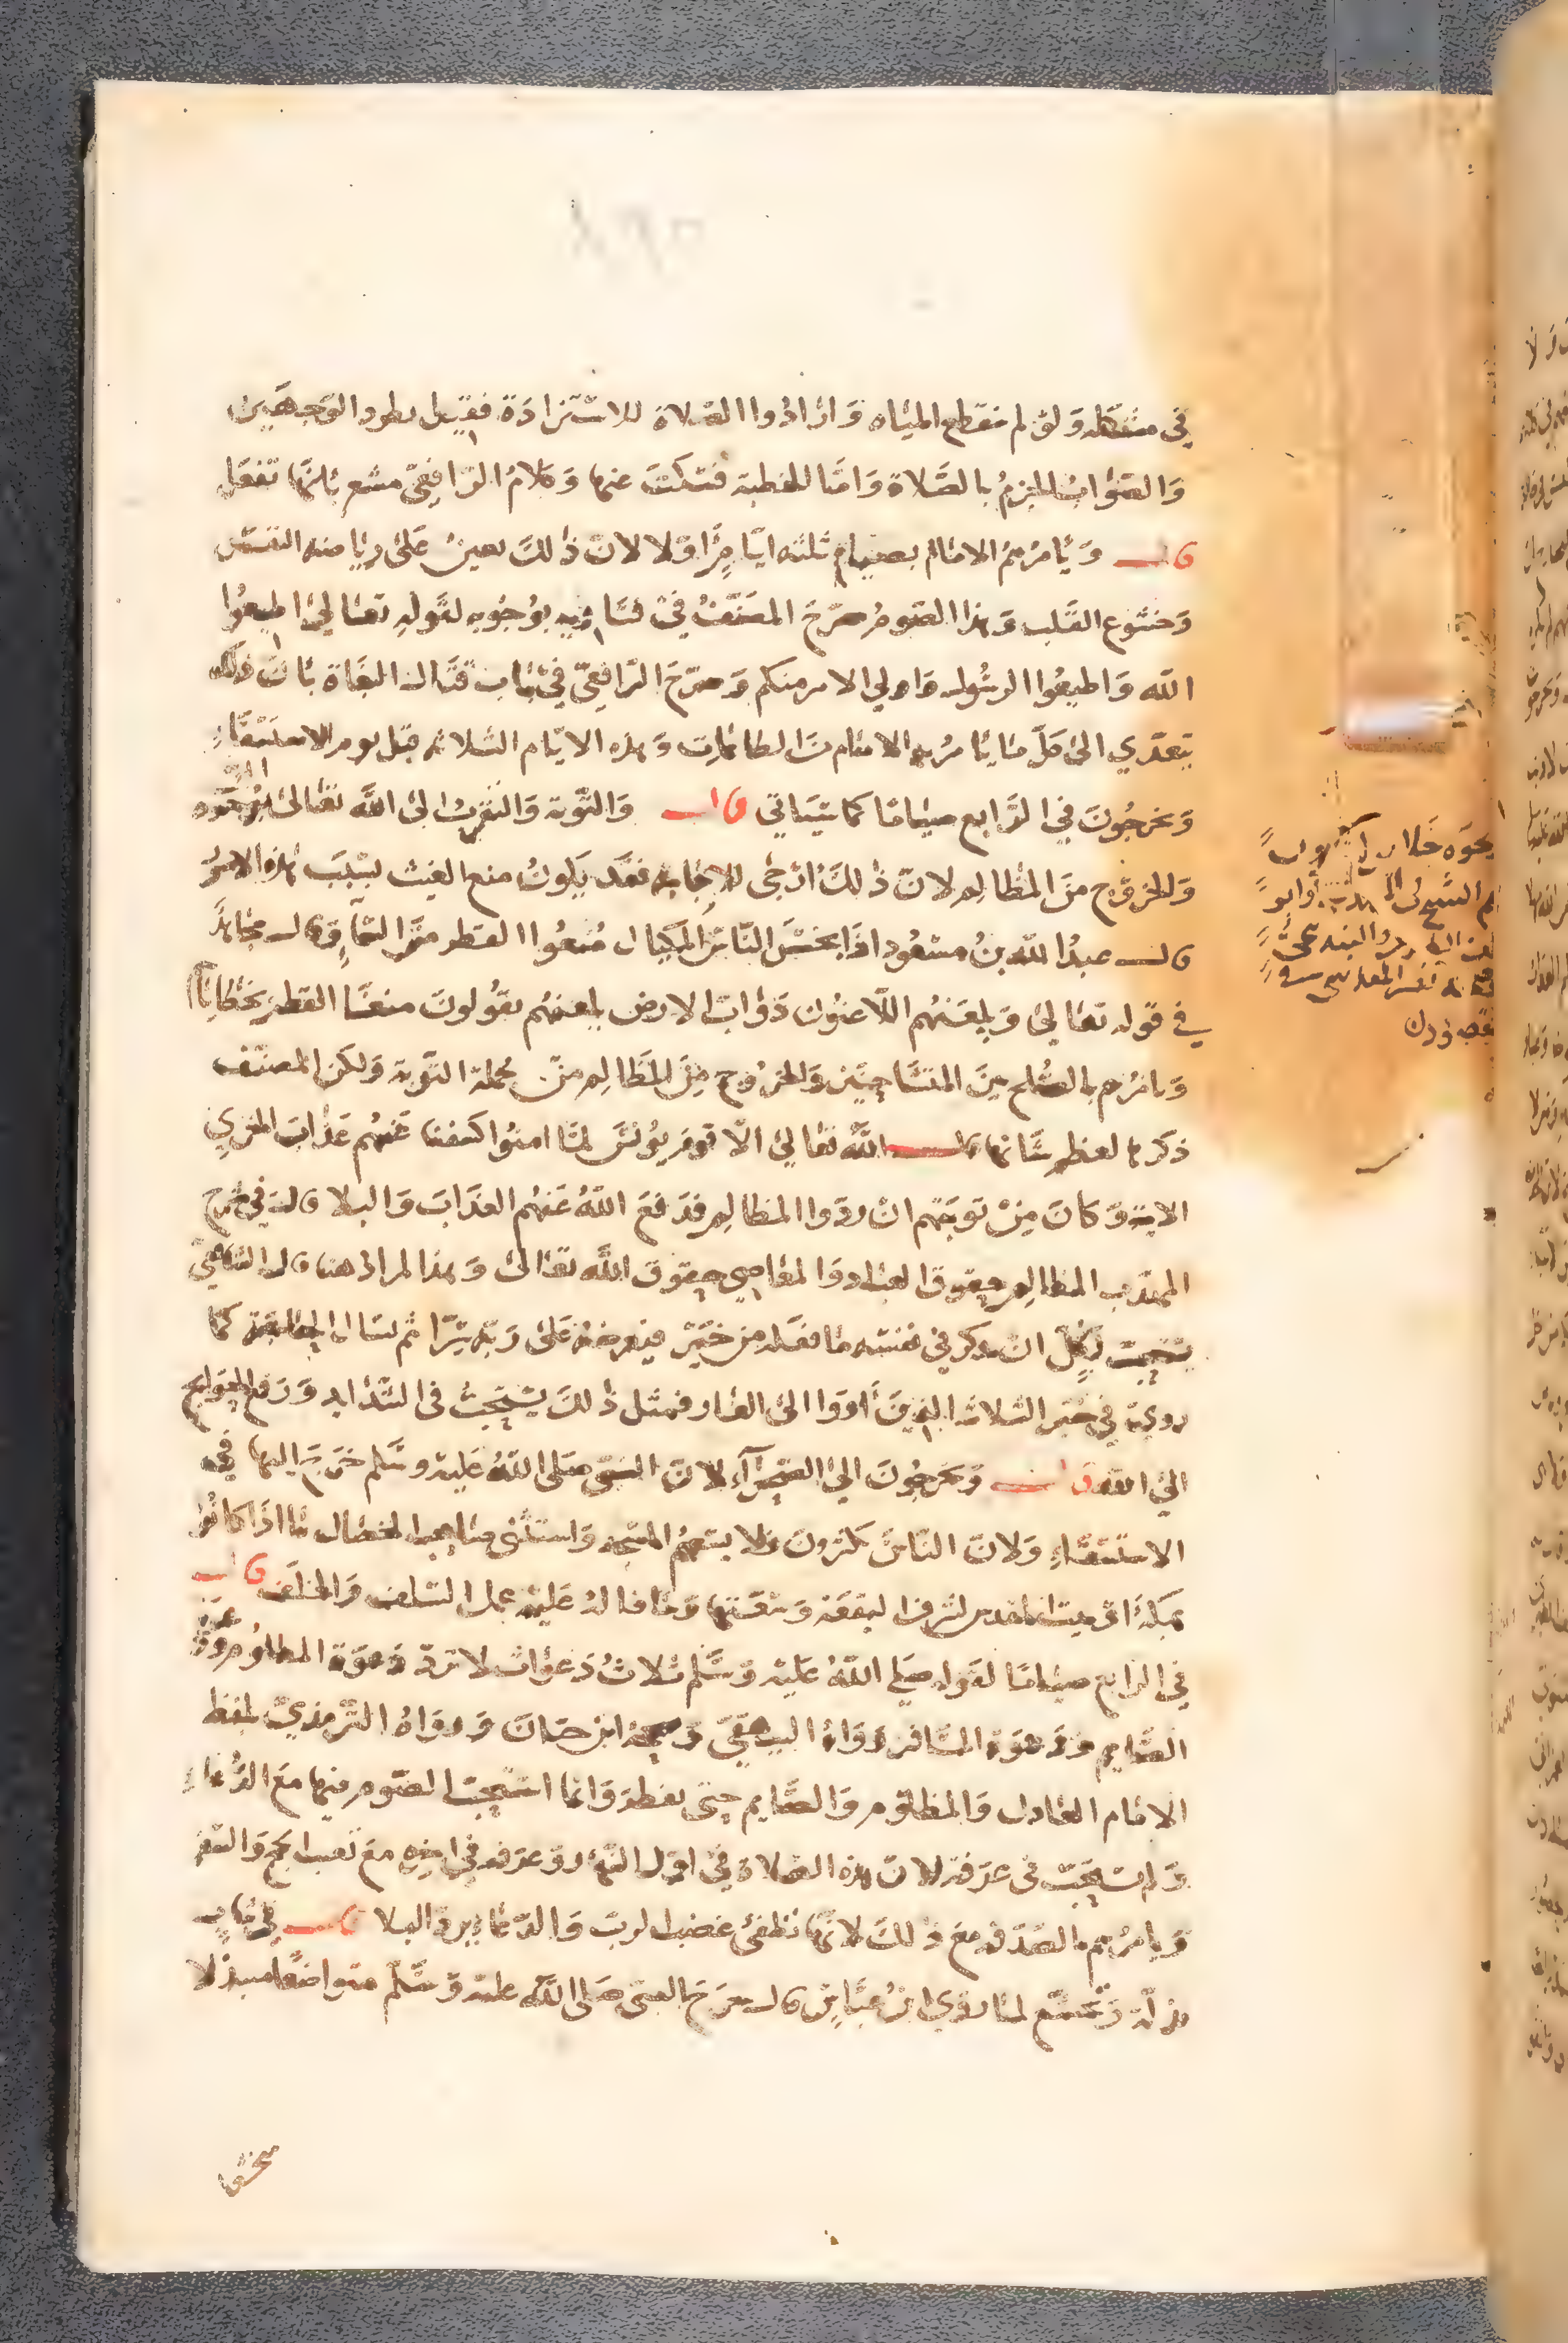 في مشكله ولو لم تنقطع المياه وارادوا الصلاة للاستزادة فقيل بطرد الوجهين
والصواب الجزم بالصلاة واما الخطبة فسكت عنها وكلام الرافعي مشعر بانها تفعل
قال ويأمرهم الامام بصيام ثلثه ايام أولا لان ذلك يعين على رياضه النفس
وخشوع القلب وهذا الصوم صرح المصنف في فتاويه بوجوبه لقوله تعالى اطيعوا
الله واطيعوا الرسول واولي الامر منكم وصرح الرافعي في باب قتال البغاة بان ذلك
يتعدي الى كل ما يامر به الامام من الطاعات وهذه الايام الثلاثه قبل يوم الاستسقاء
ويخرجون في الرابع صياما كما سيأتي قال والتوبة والتقرب الى الله تعالى بوجوه البر
والخروج من المظالم لان ذلك أرجى للاجابه فقد يكون منع الغيث بسبب هذه الامور
قال عبد الله بن مسعود اذا بخس الناس المكيال منعوا القطر من السماء وقال مجاهد
في قوله تعالى ويلعنهم اللاعنون دواب الارض يلعنهم يقولون منعنا القطر بخطاياهم
ويامرهم بالصلح بين المتشاحنين والخروج من المظالم من جملة التوبة ولكن المصنف
ذكرها لعظم شانها قال الله تعالى الا قوم يونس لما امنوا كشفنا عنهم عذاب الخزي
الاية وكان من توبتهم ان ردوا المظالم فدفع الله عنهم العذاب والبلا قال في شرح
المهذب المظالم حقوق العباد والمعاصي حقوق الله تعالى وهذا المراد هنا قال الشافعي
يستحب لكل ان يذكر في نفسه ما فعله من خير فيعرضه على ربه سرا ثم يسال
روي في خبر الثلاثة الذين أووا الى الغار فمثل ذلك يستحب في الشدايد ورفع الحوايج
الى الله قال ويخرجون الى الصحرآء لان النبي صلى الله عليه وسلم خرج اليها في
الاستسقاء ولان الناس يكثرون فلا يسعهم المسجد واستثنى صاحب الخصال ما اذا كانوا
بمكة او بيت المقدس لشرف البقعة وسعتها وما قاله عليه عمل السلف والخلف قال
في الرابع صياما لقوله صلى الله عليه وسلم ثلاث دعوات لا ترد دعوة المظلوم ودعوة
الصايم ودعوة المسافر رواه البيهقي وصححه ابن حبان ورواه الترمذي بلفظ
الامام العادل والمظلوم والصايم حتى يفطر وانما استحب الصوم فيها مع الدعاء
ولم يستحب في عرفة لان هذه الصلاة في اول النهار وعرفه في اخره مع تعب الحج والسفر
ويامرهم بالصدقه مع ذلك لانها تطفئ غضب الرب والدعا يرد البلا قال في ثياب
بذلة وتخشع لما روي ابن عباس قال خرج النبي صلى الله عليه وسلم متواضعا متبذلا